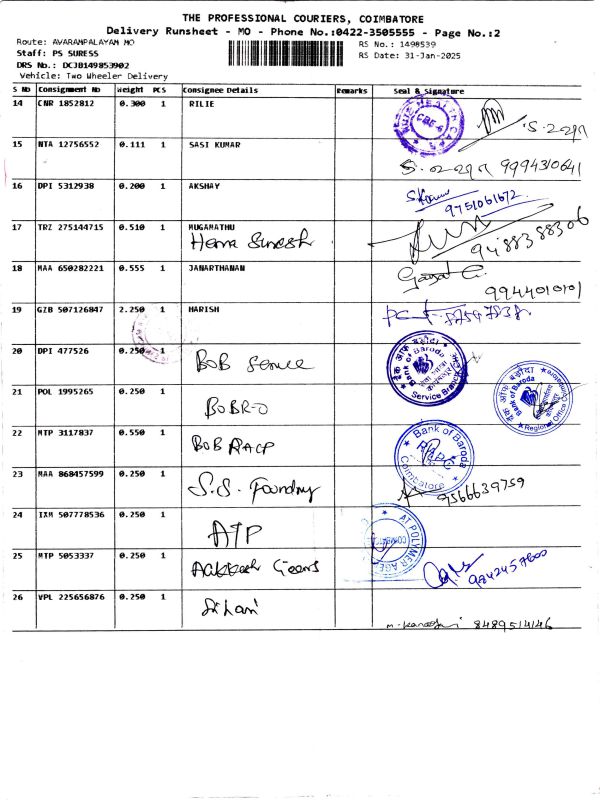 THE PROFESSIONAL COURIERS, COIMBATORE
Delivery Runsheet - MO - Phone No.:0422-3505555 - Page No.:2
Route: AVARAMPALAYAM MO RS No.: 1498539
Staff: PS SURESS RS Date: 31-Jan-2025
DRS No.: DCJB149853902
Vehicle: Two Wheeler Delivery
S No Consignment No Weight PCS Consignee Details Remarks Seal & Signature
14 CNR 1852812 0.300 1 RILIE
CBE-6
15 NTA 12756552 0.111 1 SASI KUMAR
9994310641
16 DPI 5312938 0.200 1 AKSHAY
9751061672
17 TRZ 275144715 0.510 1 MUGAMATHU
Hema Suresh 9488388306
18 MAA 650282221 0.555 1 JANARTHANAN
9944010101
19 GZB 507126847 2.250 1 HARISH
20 DPI 477526 0.250 1 BOB Service
बैंक ऑफ बड़ौदा
Bank of Baroda
Service Branch
21 POL 1995265 0.250 1 BOBRO
बैंक ऑफ बड़ौदा
Bank of Baroda
Regional Office
22 MTP 3117837 0.550 1 BOB RACP
Bank of Baroda
Coimbatore
23 MAA 868457599 0.250 1 S.S. Foundry
9566639759
24 IXM 507778536 0.250 1 ATP
AT POLYMER AGE
25 MTP 5053337 0.250 1
9842457600
26 VPL 225656876 0.250 1
8489514146